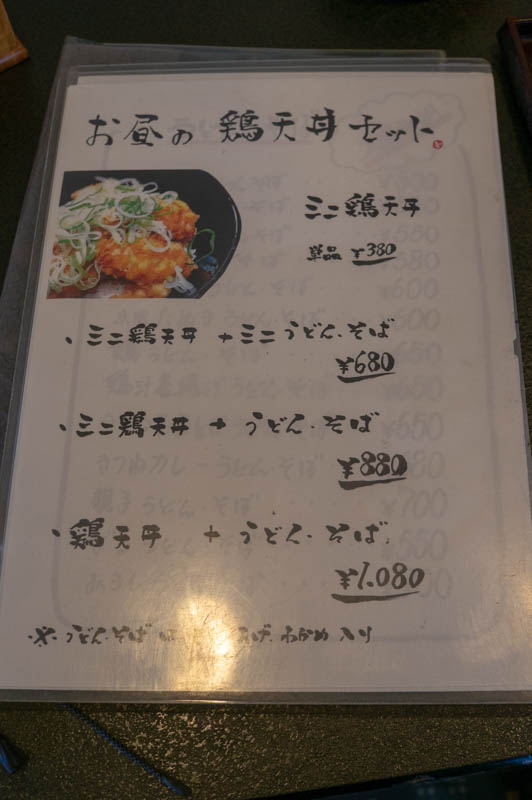 お昼の 鶏天丼セット
ミニ鶏天丼
単品 ¥380
・ミニ鶏天丼 +ミニうどん・そば
¥680
・ミニ鶏天丼 + うどん・そば
¥880
・鶏天丼 + うどん・そば
¥1,080
※うどん・そばは わかめ入り